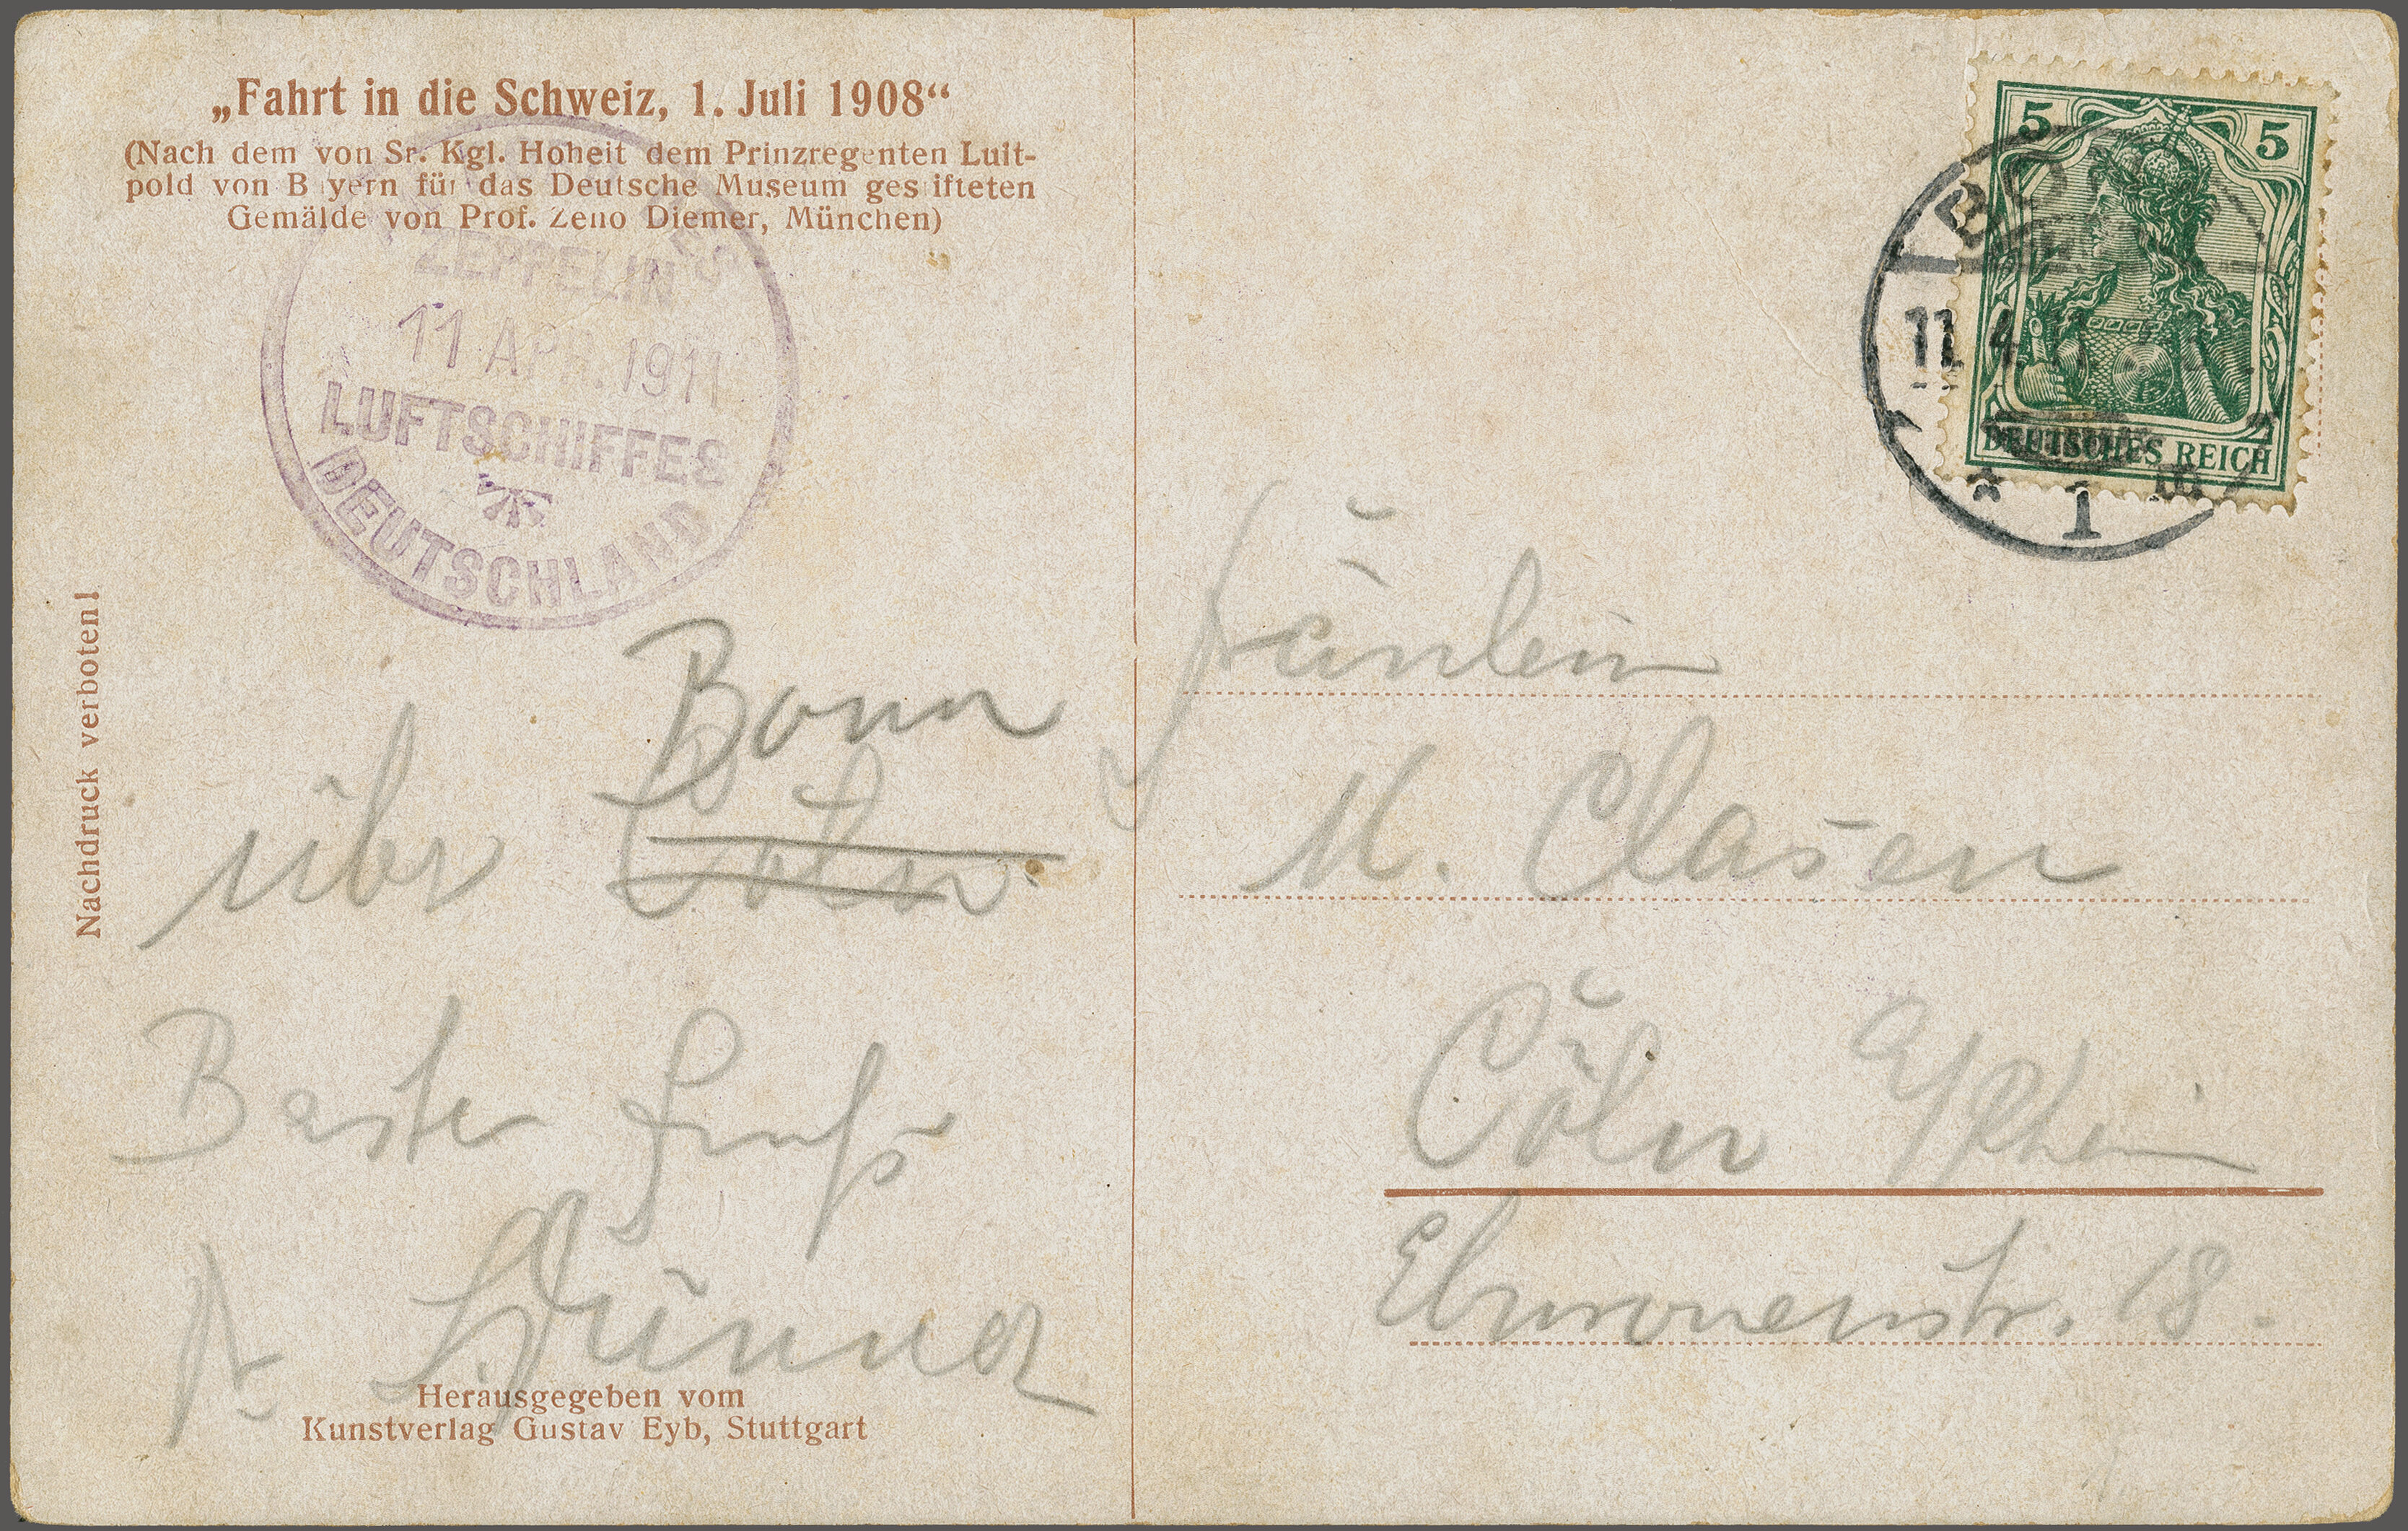 „Fahrt in die Schweiz, 1. Juli 1908“
(Nach dem von Sr. Kgl. Hoheit dem Prinzregenten Luit-
pold von B yern für das Deutsche Museum ges ifteten
Gemälde von Prof. Zeno Diemer, München)
ZEPPELIN
11 APR. 1911
LUFTSCHIFFES
DEUTSCHLAND
Nachdruck verboten!
Bonn
über Cöln
Bester Gruß
Herausgegeben vom
Kunstverlag Gustav Eyb, Stuttgart
5 5
DEUTSCHES REICH
BO
11.4.11
* 1
Fräulein
M. Clasen
Cöln a/Rhein
Eburonenstr. 18.